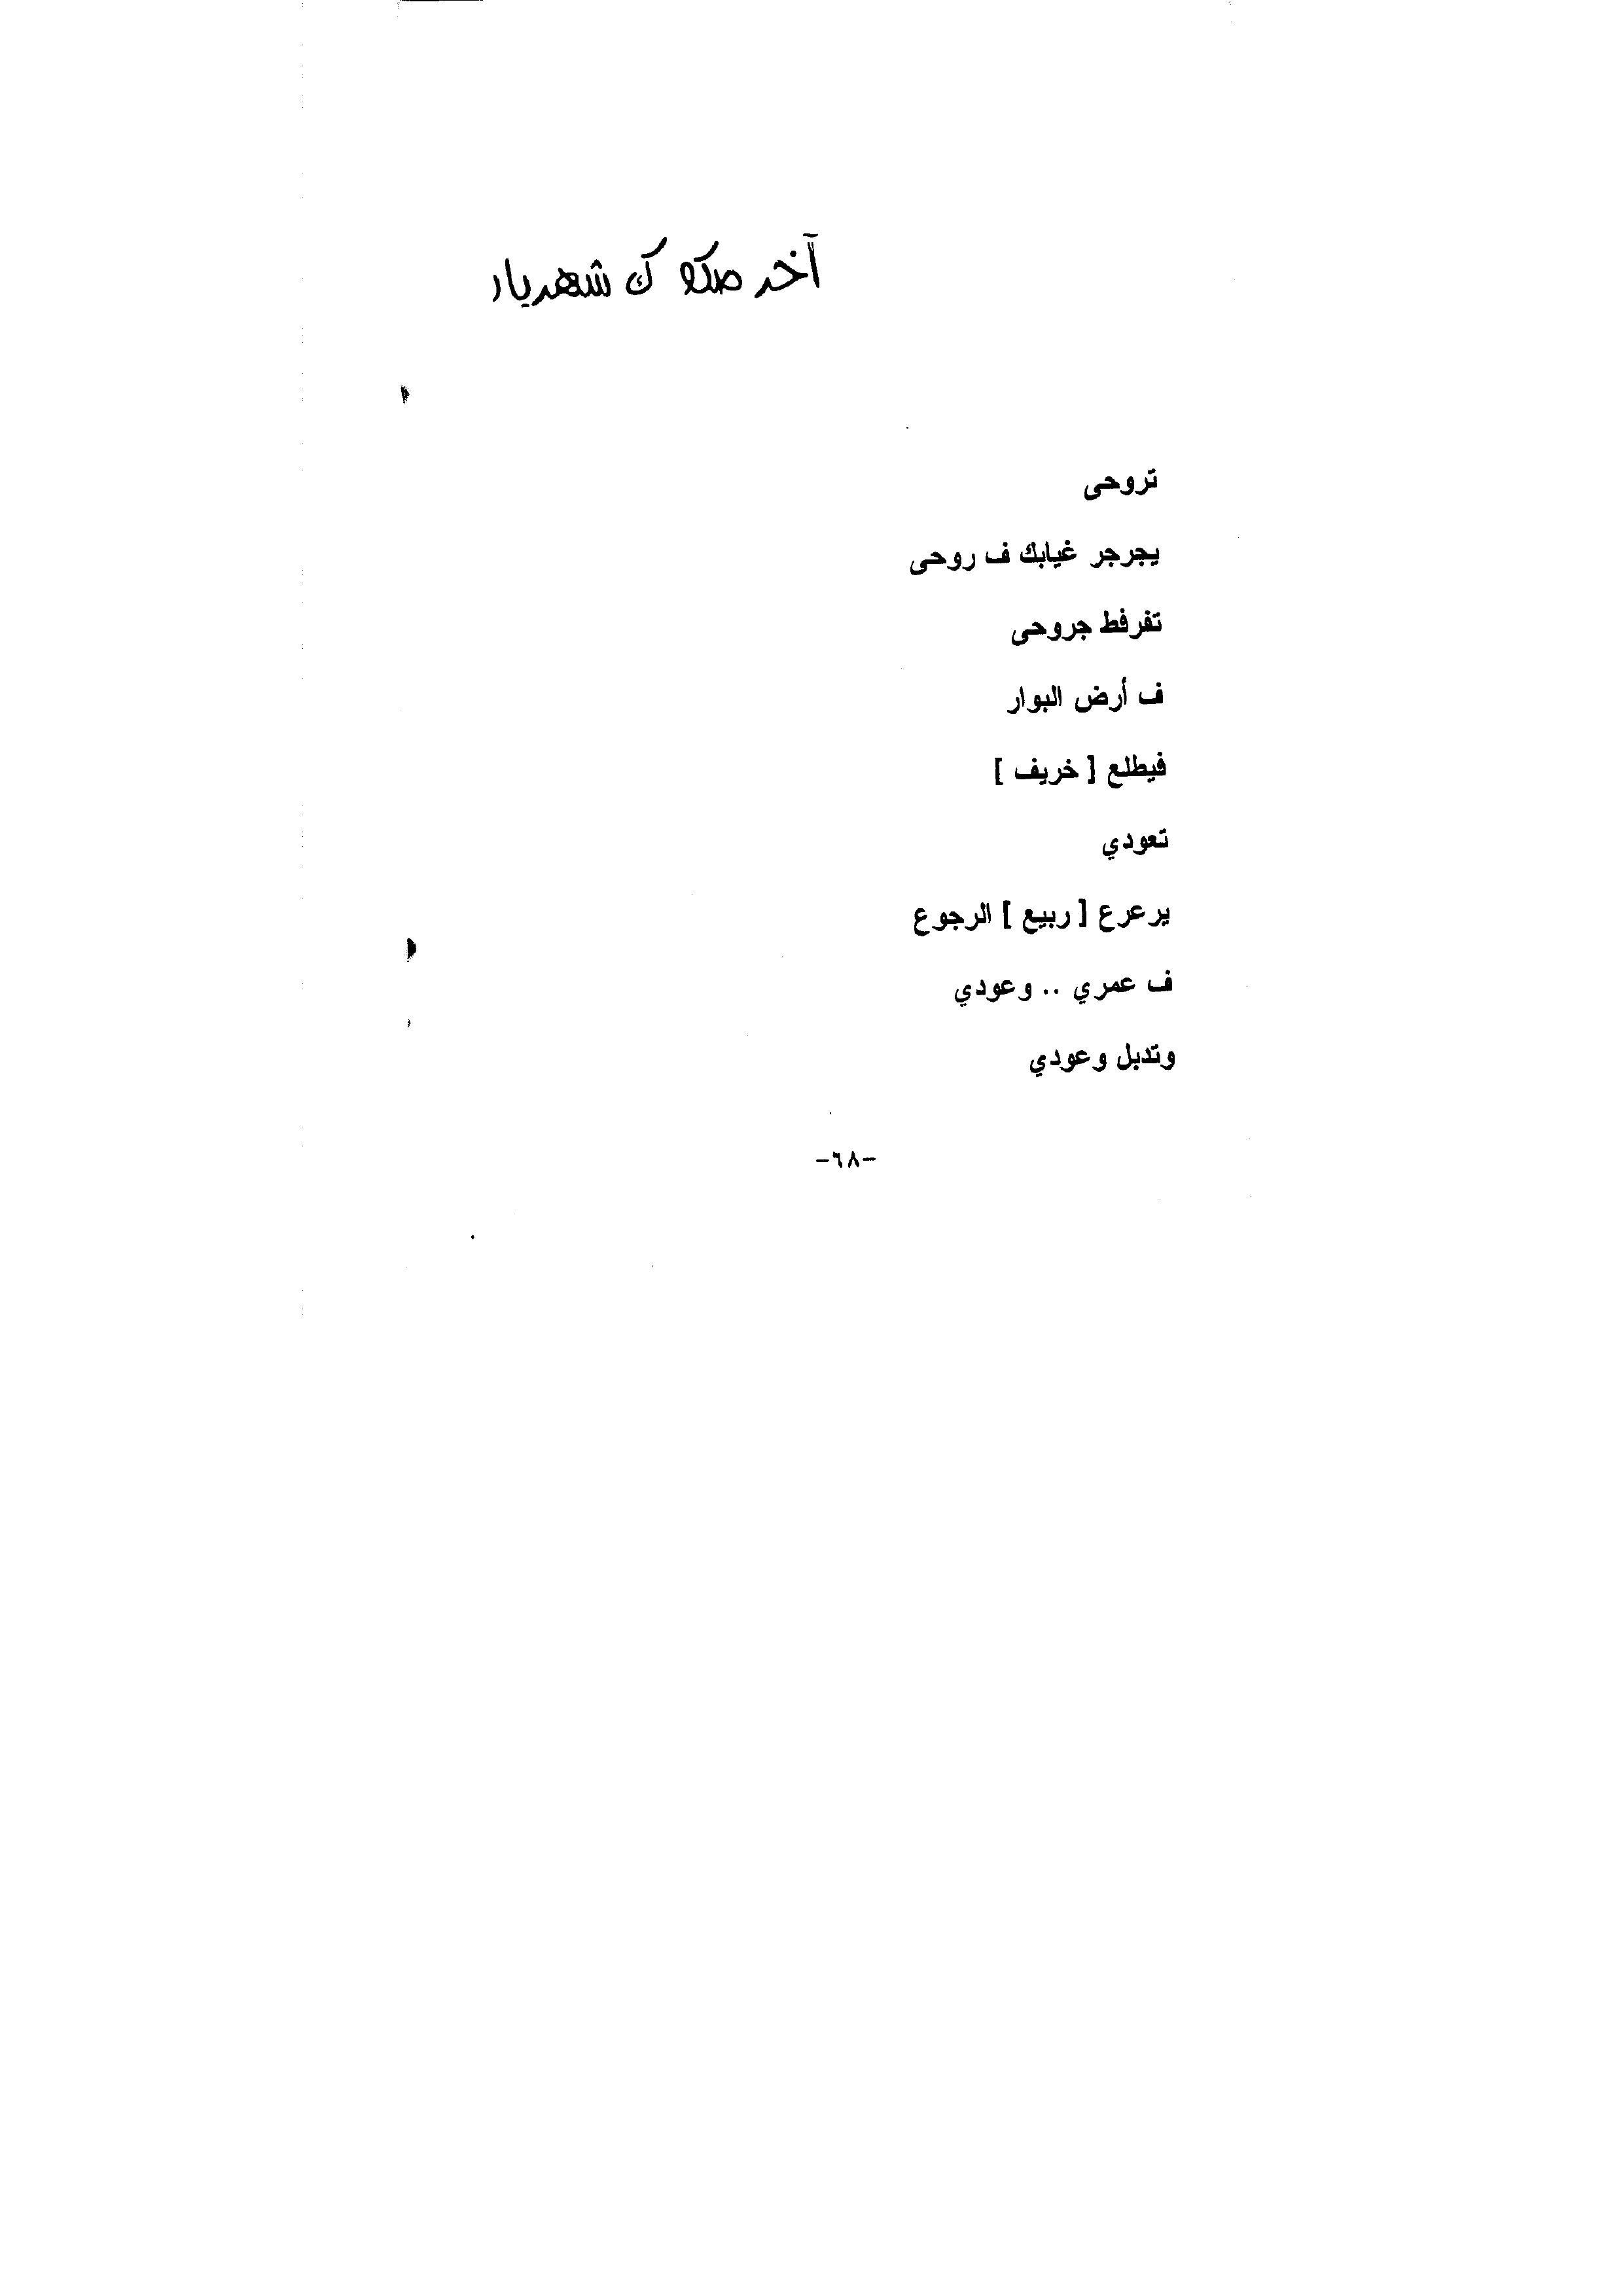 آخر صكوك شهريار
تروحى
يجرجر غيابك ف روحى
تفرفط جروحى
ف أرض البوار
فيطلع [ خريف ]
تعودي
يرعرع [ ربيع ] الرجوع
ف عمري .. وعودي
وتدبل وعودي
-٦٨-